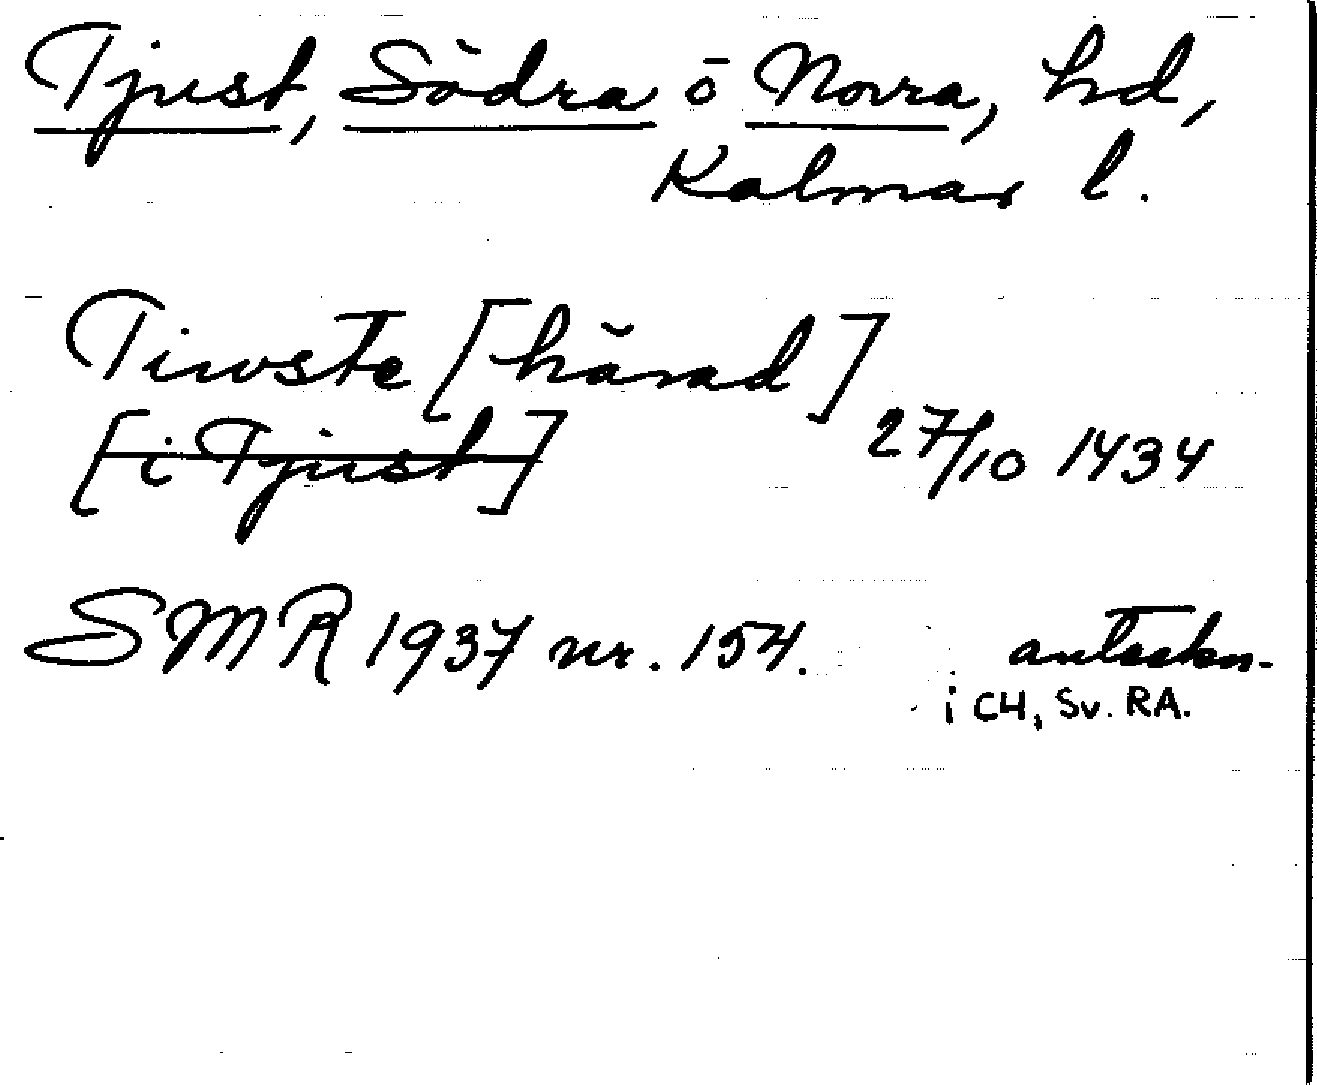 Tjust, Södra o Norra, hd,
Kalmar l.
Tiwste [härad]
[i Tjust]
27/10 1434
SMR 1937 nr. 154. anteckn.
i CH, Sv. RA.